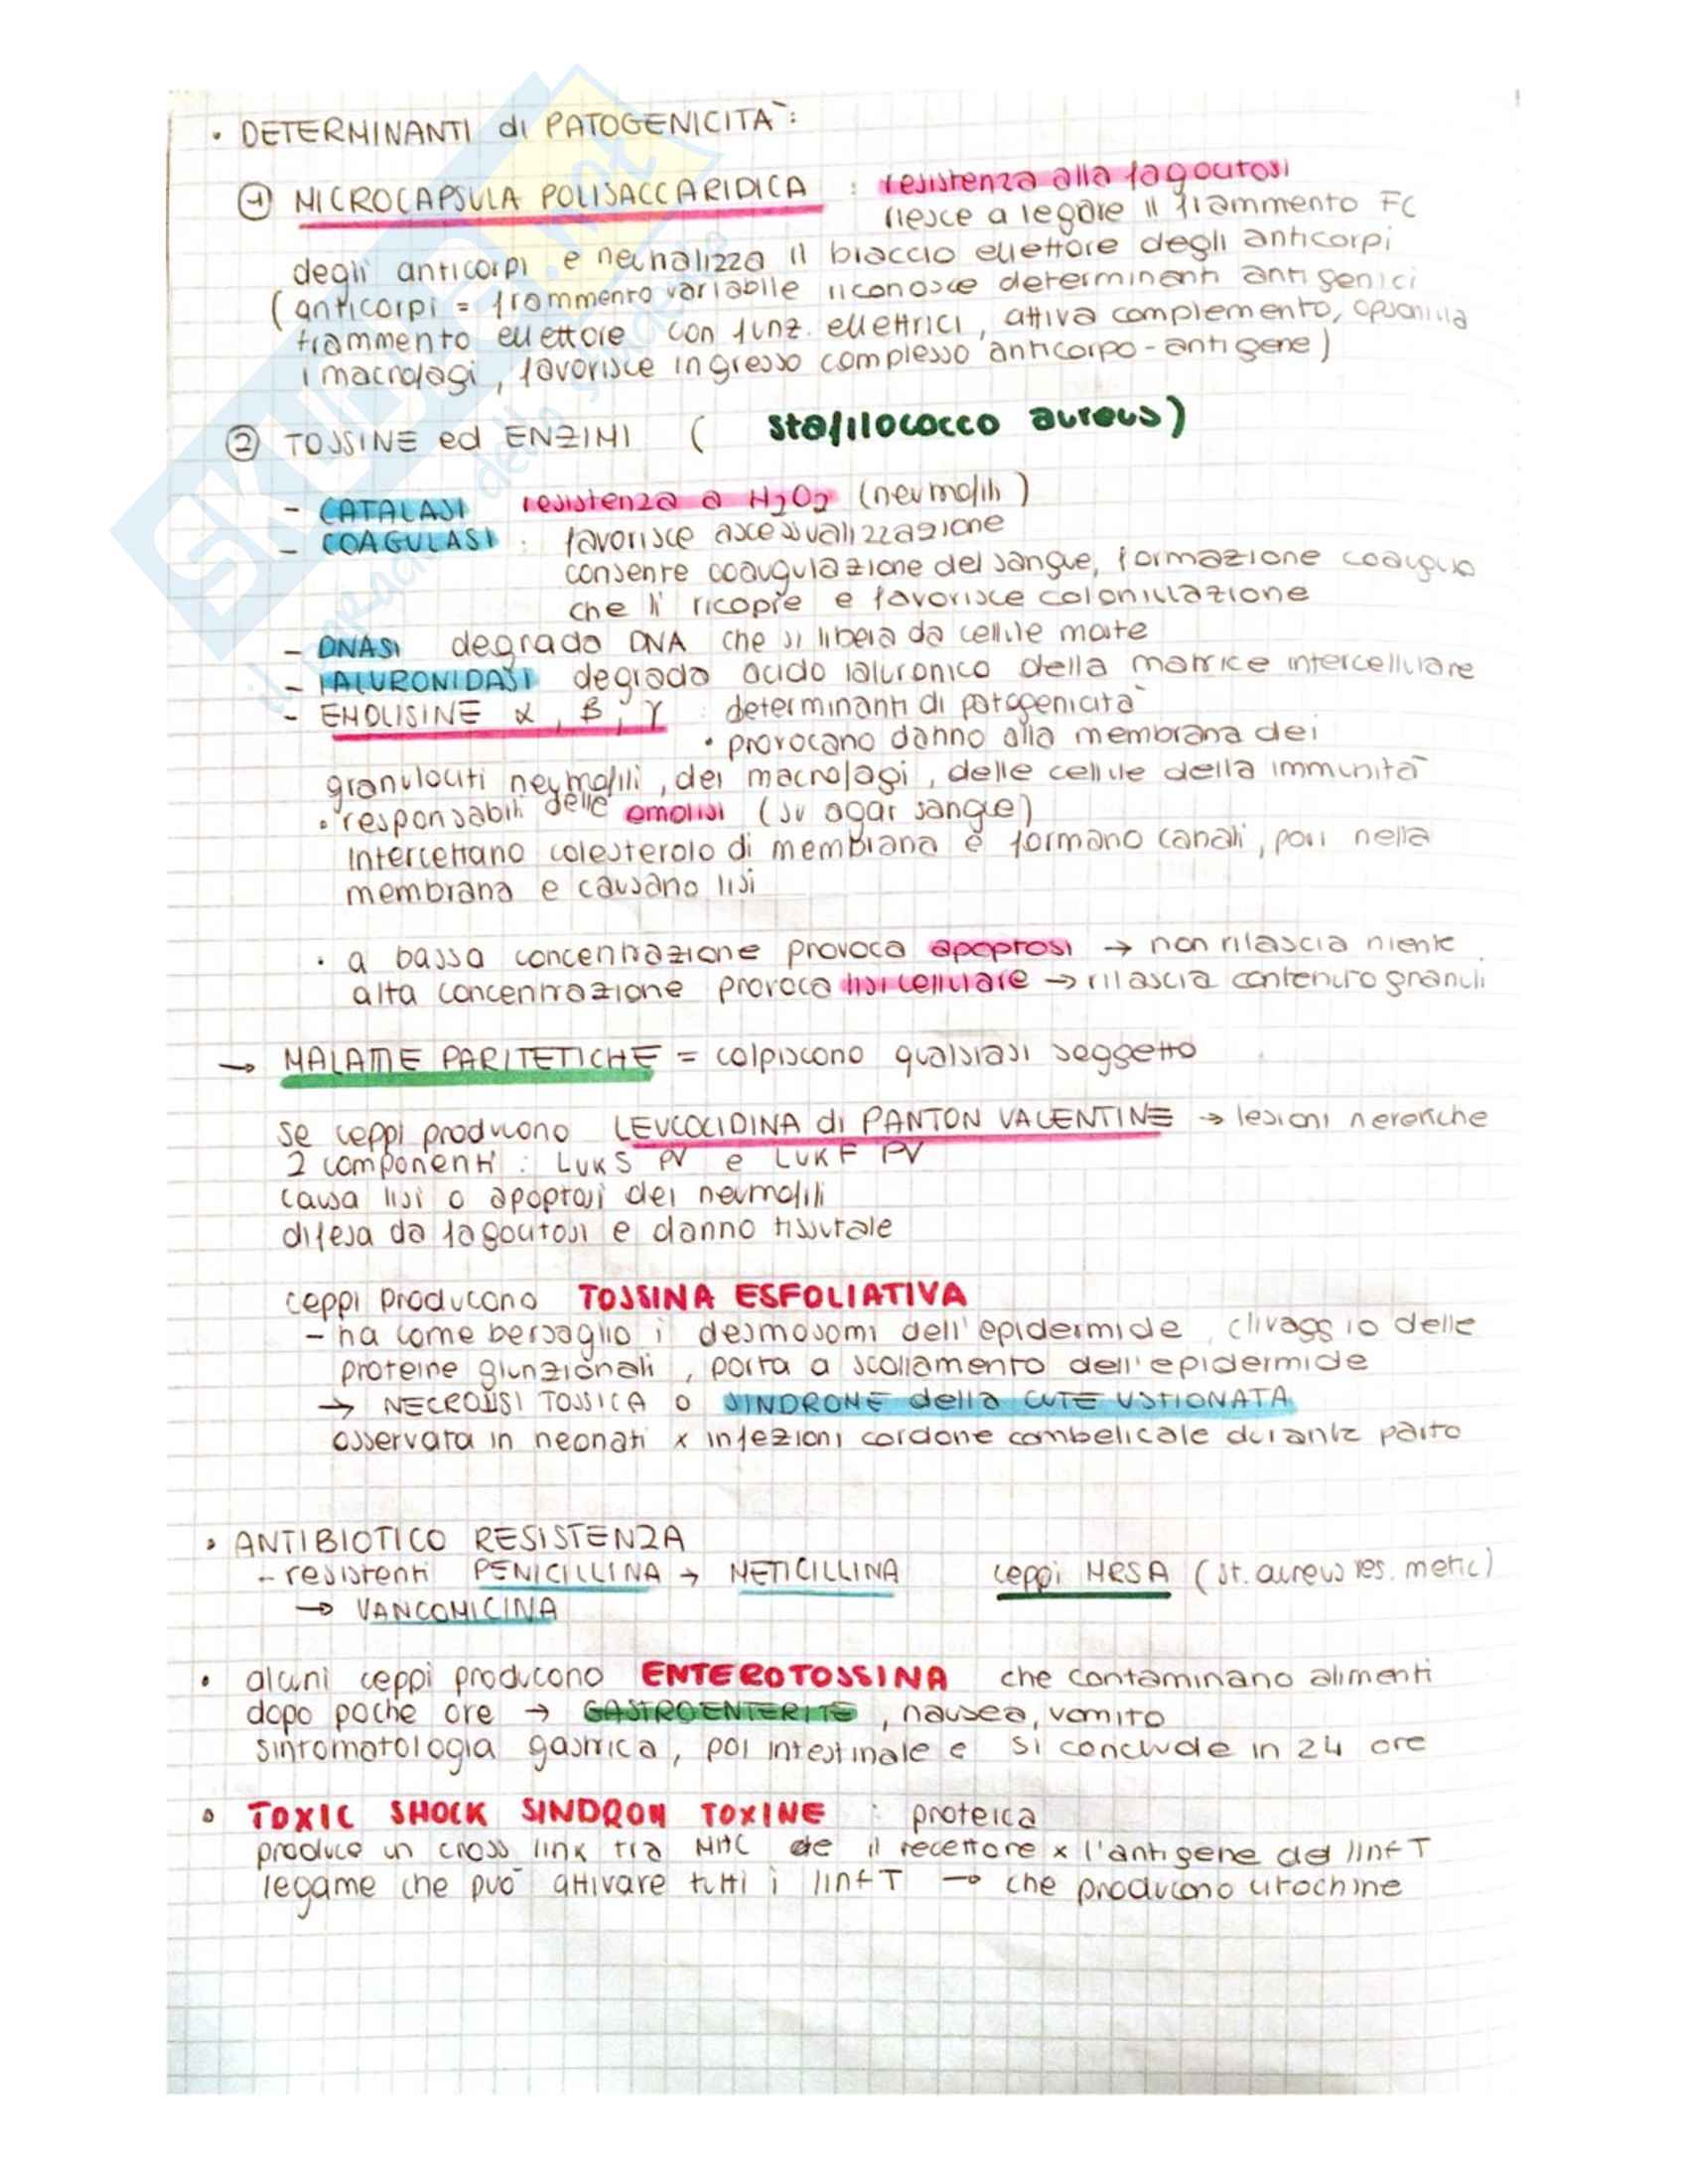 • DETERMINANTI di PATOGENICITÀ:
① MICROCAPSULA POLISACCARIDICA : resistenza alla fagocitosi
riesce a legare il frammento FC
degli anticorpi e neutralizza il braccio effettore degli anticorpi
(anticorpi = frammento variabile riconosce determinanti antigenici
frammento effettore con funz. effettrici, attiva complemento, opsonizza
i macrofagi, favorisce ingresso complesso anticorpo-antigene)
② TOSSINE ed ENZIMI ( stafilococco aureus)
- CATALASI resistenza a H2O2 (neutrofili)
- COAGULASI : favorisce ascessualizzazione
consente coaugulazione del sangue, formazione coaugulo
che li ricopre e favorisce colonizzazione
- DNASI degrada DNA che si libera da cellule morte
- IALURONIDASI degrada acido ialuronico della matrice intercellulare
- EMOLISINE α, β, γ : determinanti di patogenicità
• provocano danno alla membrana dei
granulociti neutrofili, dei macrofagi, delle cellule della immunità
• responsabili delle emolisi (su agar sangue)
Intercettano colesterolo di membrana e formano canali, pori nella
membrana e causano lisi
• a bassa concentrazione provoca apoptosi → non rilascia niente
alta concentrazione provoca lisi cellulare → rilascia contenuto granuli
→ MALATTIE PARITETICHE = colpiscono qualsiasi soggetto
se ceppi producono LEUCOCIDINA di PANTON VALENTINE → lesioni necrotiche
2 componenti : LUKS PV e LUKF PV
causa lisi o apoptosi dei neutrofili
difesa da fagocitosi e danno tissutale
ceppi producono TOSSINA ESFOLIATIVA
- ha come bersaglio i desmosomi dell'epidermide, clivaggio delle
proteine giunzionali, porta a scollamento dell'epidermide
→ NECROLISI TOSSICA o SINDROME della CUTE USTIONATA
osservata in neonati x infezioni cordone combelicale durante parto
• ANTIBIOTICO RESISTENZA
- resistenti PENICILLINA → METICILLINA ceppi MRSA (st. aureus res. metic)
→ VANCOMICINA
• alcuni ceppi producono ENTEROTOSSINA che contaminano alimenti
dopo poche ore → GASTROENTERITE, nausea, vomito
sintomatologia gastrica, poi intestinale e si conclude in 24 ore
• TOXIC SHOCK SINDROM TOXINE : proteica
produce un cross link tra MHC e il recettore x l'antigene del linf T
legame che può attivare tutti i linf T → che producono citochine
SKUOLA.net
il portale dello studente